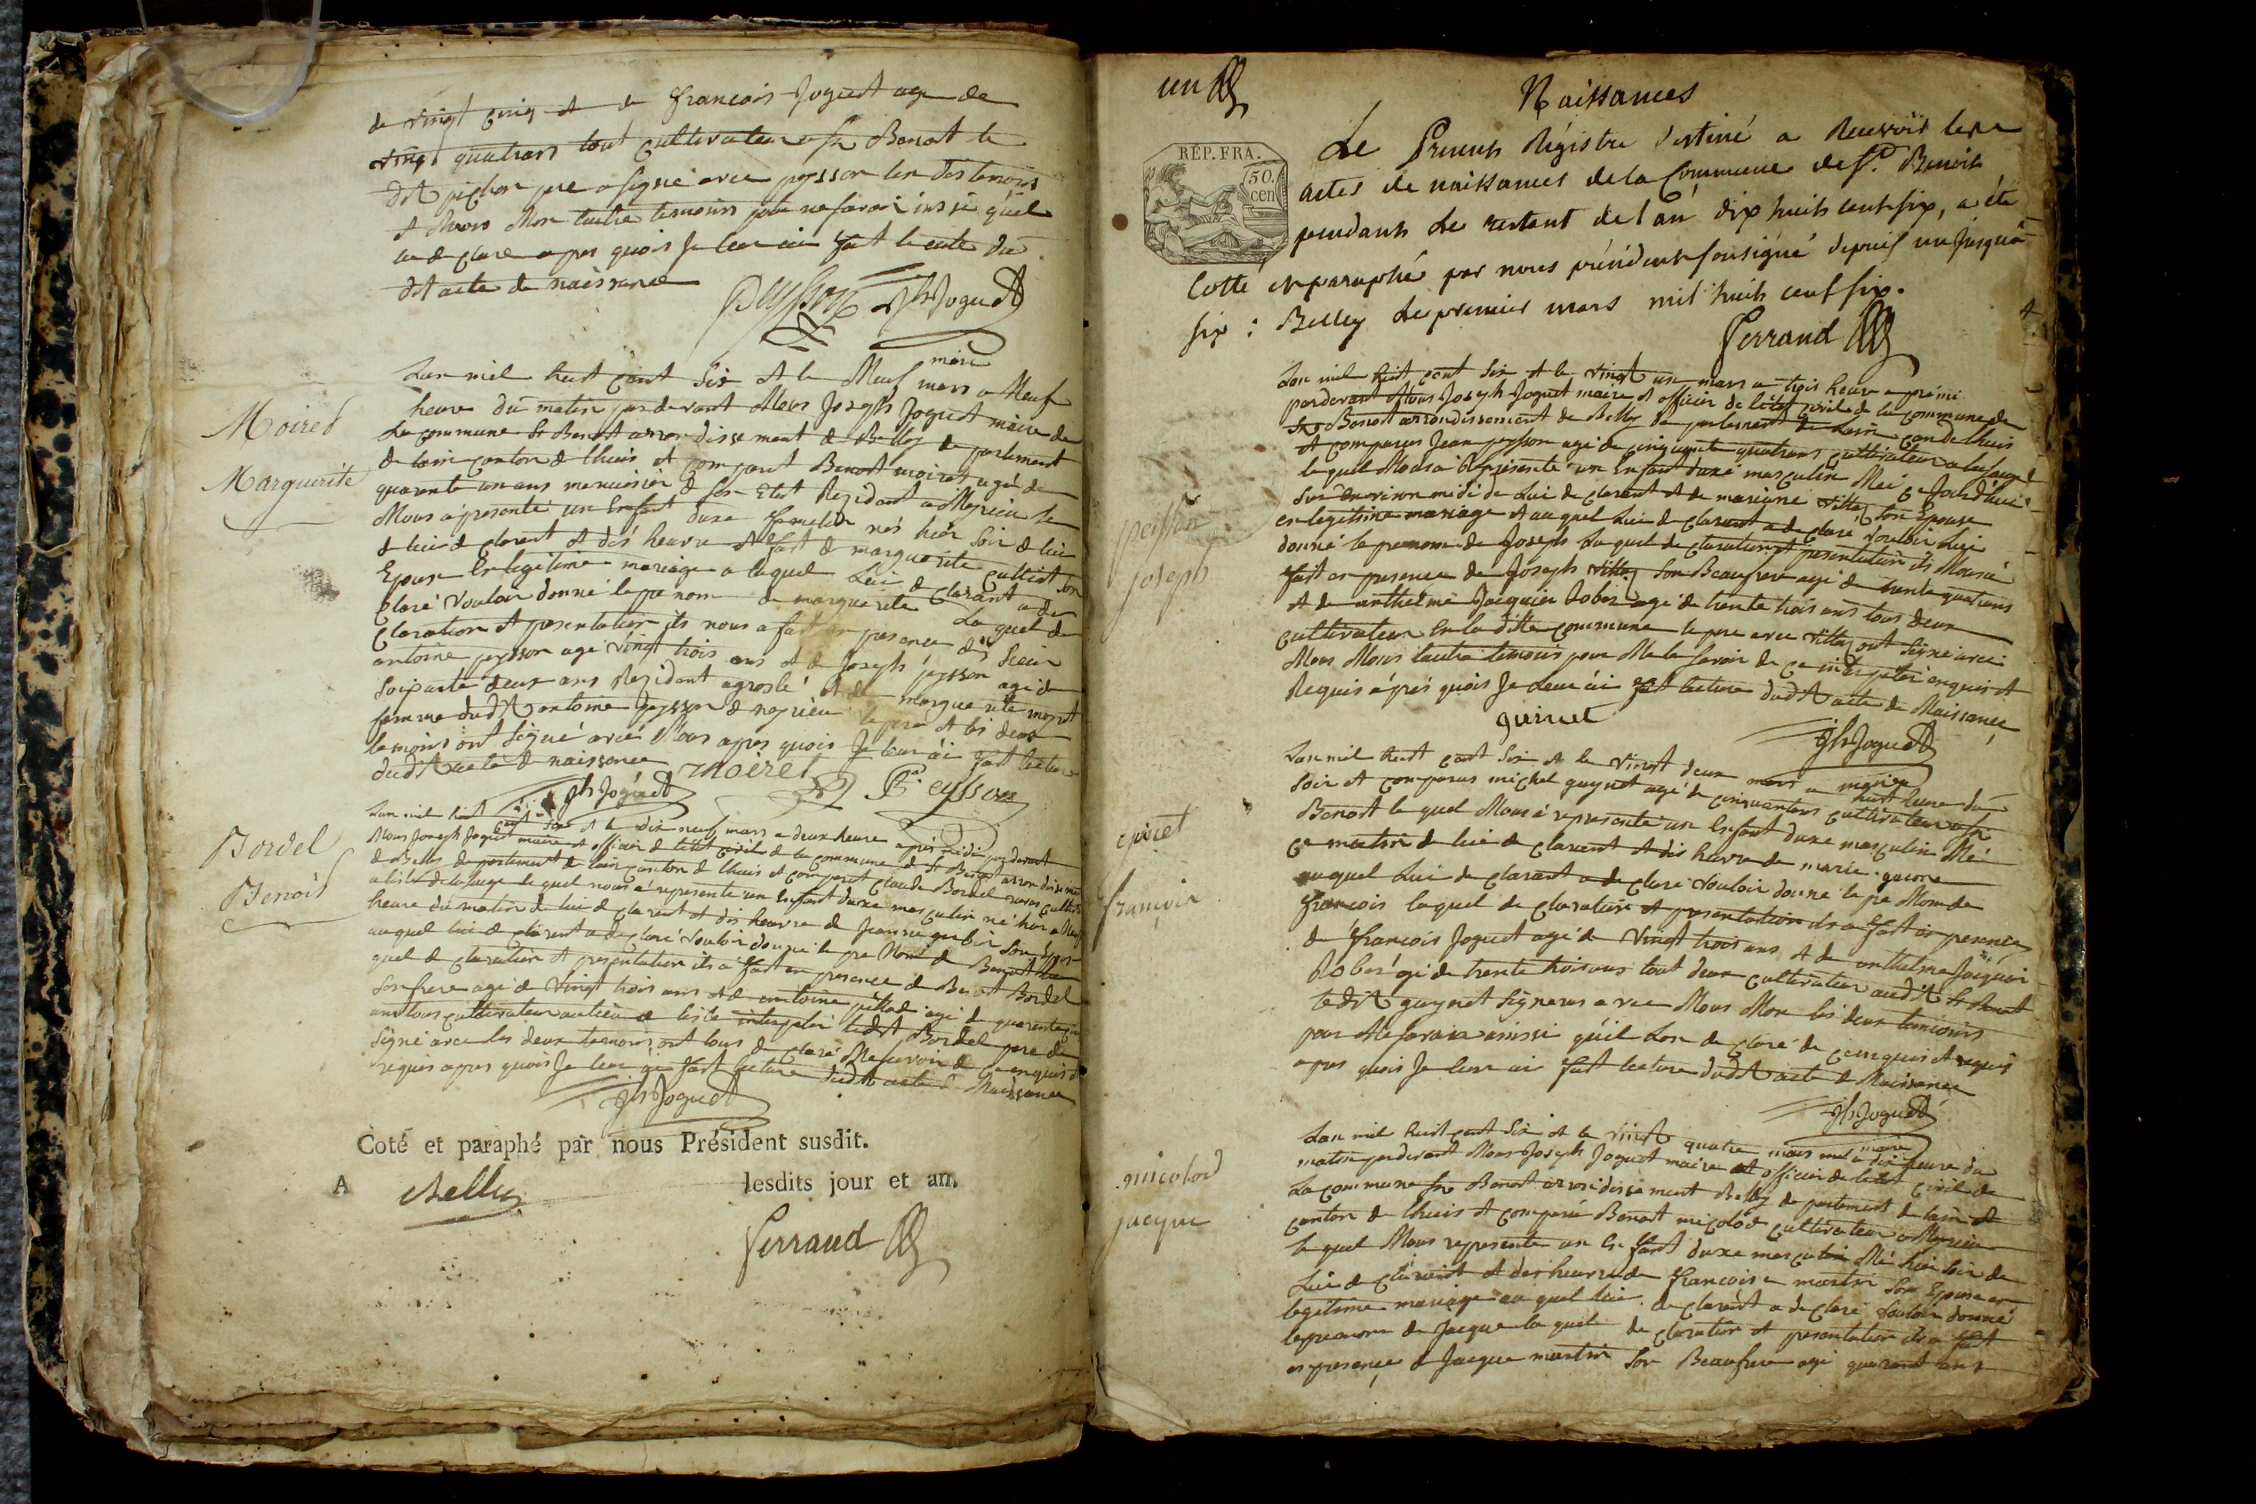 de vingt cinq et de francois Joguet age de
vingt quatrans tout cultivateur a St Benoit le
dit pere a signé avec peysson lun des temoins
et Nous Non lautre temoins pour ne savoir insi quil
a de clare apres quois Je leur ai fait lecture du
dit acte de naissance
Peysson Jh Joguet
maire
Moiret
Marguerite
Lan mil huit cent Six et le Neuf mars a Neuf
heure du matin par devant Nous Joseph Joguet maire de
La commune St Benoit arrondissement de Belley de partement
de lain canton de lhuis et comparut Benoit moiret agé de
quarante un ans menuisier de son Etat Rezidant a Nepieu le
Nous a presenté un Enfant du sexe femelle né hier Soir de lui
de lui de clarent et de heure et fait de marguerite son
Epouse En legitime mariage a laquel Lui de clarant a de
claré vouloir donné le pre nom de marguerite La quel de
claration et presentation ils nous a fait en presence du Sieur
antoine peysson agé vingt trois ans et de Joseph peysson agé de
Soixante deux ans Rezidant a groslé et de marguerite moiret
femme dudit antoine peysson de nepieu le pere et les deux
temoins ont Signé avec Nous apres quois Je leur ai fait lecture
dudit acte de naissance moiret
Jh Joguet Peysson
Bordel
Benoit
Lan mil huit cent Six et le dix neuf mars a deux heure apres midi pardevant
Nous Joseph Joguet maire et officier de letat civil de la commune de St Benoit arrondissement
de Belley de partement de lain canton de lhuis et comparut Claude Bordel
le quel nous a representé un Enfant du sexe masculin né hier a Neuf
heure du matin de lui de clarent et des heure de Jeanne gerbin Son Epouse
auquel lui de clarent a de claré vouloir donné le pre Nom de Benoit
quel de claration et presentation ils a fait en presence de Benoit Bordel
Son frere agé de vingt trois ans et de antoine agé de quarante
ans tous cultivateur le dit Bordel pere de
Signé avec les deux temoins ont tous de claré Ne savoir de ce enquis et
requis apres quois Je leur ai fait lecture dudit acte de Naissance
Jh Joguet
Coté et paraphé par nous Président susdit.
A Belley lesdits jour et an.
Ferrand
un
Naissances
RÉP. FRA.
50.
cen
Le Present Régistre destiné a recevoir les
actes de naissances de la Commune de St. Benoit
pendant le restant de l'an dix huit cent six, a été
Cotté et paraphé par nous président soussigné depuis un jusqu'à
six : Belley le premier mars mil huit cent six.
Ferrand
peisson
joseph
Lan mil huit cent Six et le vingt un mars a trois heure apré mi
pardevant Nous Joseph Joguet maire et officier de létat civil de la commune de
St Benoit arrondissement de Belley de partement de Lain can de lhuis
et comparus Jean peysson agé de cinquante quatrans cultivateur
le quel Nous a Représenté un Enfant du sexe masculin Né ce Jourd'hui
Sur environ midi de Lui de clarent et de marianne vittoz Son Epouse
en legitime mariage et au quel Lui de clarant a de claré vouloir
donné le prenom de Joseph La quel de claration et presentation ils Nous a
fait en presence de Joseph vittoz Son Beaufrere agé de trente quatrans
et de anthelme Jacquier agé de trente trois ans tous deux
cultivateur En la ditte commune le pere avec vittoz ont Signé avec
Nous Nous lautre temoins pour Ne le savoir de ce interpelé enquis et
Requis aprés quois Je Leur ái fait lecture dudit acte de Naissance
guinet
Jh Joguet
maire
epinet
françoir
Lan mil huit cent Six et le vingt deux mars a huit heure du
Soir et comparus michel guynet agé de cinquantans cultivateur a St
Benoit le quel Nous á representé un Enfant du sexe masculin Né
ce matin de lui de clarent et des heure de marie
auquel Lui de clarant a de claré vouloir donné le pre Nom de
François laquel de claration et presentation ils a fait en presence
de françois Joguet agé de vingt trois ans et de anthelme Jacquier
agé de trente trois ans tout deux cultivateur audit St Benoit
ledit guynet Signeras avec Nous Non les deux temoins
pour Ne savoir ainssi quil Lon de claré de ce enquis et requis
apres quois Je leur ai fait lecture dudit acte de Naissance
Jh Joguet
maire
micolod
jacque
Lan mil huit cent Six et le vingt quatre mars a dix heure du
matin pardevant Nous Joseph Joguet maire et officier de letat civil de
La commune St Benoit arrondissement Belley de partement de lain et
canton de lhuis et comparu Benoit micolod cultivateur a Nepieu
le quel Nous represente un Enfant du sexe masculin Né hier Soir de
Lui de clarent et des heure de françoise martin Son Epouse en
legitime mariage au quel lui de clarent a de claré vouloir donné
le prenom de Jacque la quel de claration et presentation ils a fait
en presence de Jacque martin Son Beaufrere agé quarant ans